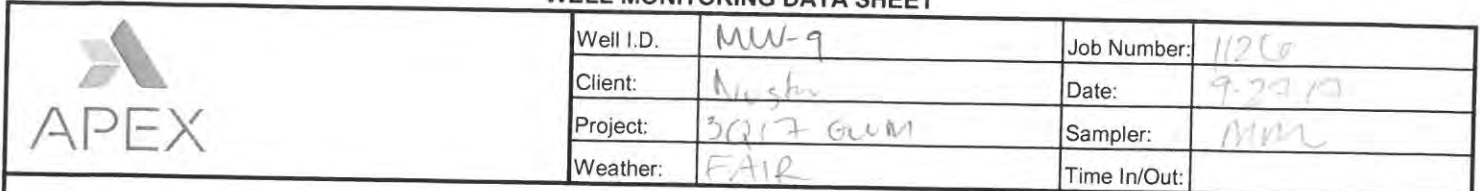 WELL MONITORING DATA SHEET
APEX
Well I.D. MW-9
Job Number: 1126
Client:
Date:
Project: 3Q17 GWM
Sampler: MM
Weather: FAIR
Time In/Out: